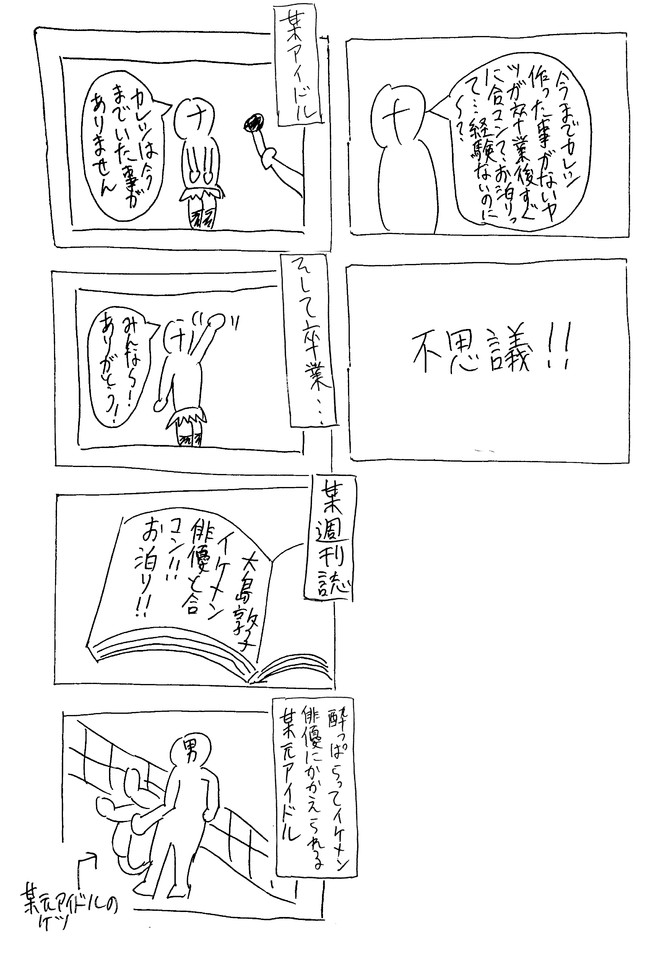 某アイドル
カレシは今
までいた事が
ありません
そして卒業…
みんなぁ!
ありがとう!
某週刊誌
大島敦子
イケメン
俳優と合
コン!!
お泊り!!
酔っぱらってイケメン
俳優にかかえられる
某元アイドル
男
某元アイドルの
ケツ
今までカレシ
作った事がないヤ
ツが卒業後すぐ
に合コンで、お泊りっ
て…経験ないのに
〜?
不思議!!